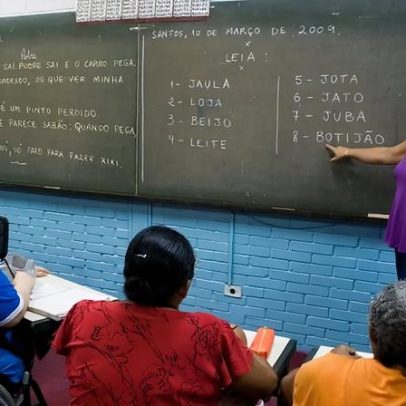 SAI, PUDRE SAI E O CARRO PEGA.
QUADRADO, DO QUE VER MINHA
É UM PINTO PERDIDO.
E PARECE SABÃO. QUANDO PEGA,
SÓ PARO PARA FAZER XIXI.
SANTOS, 10 DE MARÇO DE 2009.
LEIA:
1- JAULA
2- LOJA
3- BEIJO
4- LEITE
5- JOTA
6- JATO
7- JUBA
8- BOTIJÃO